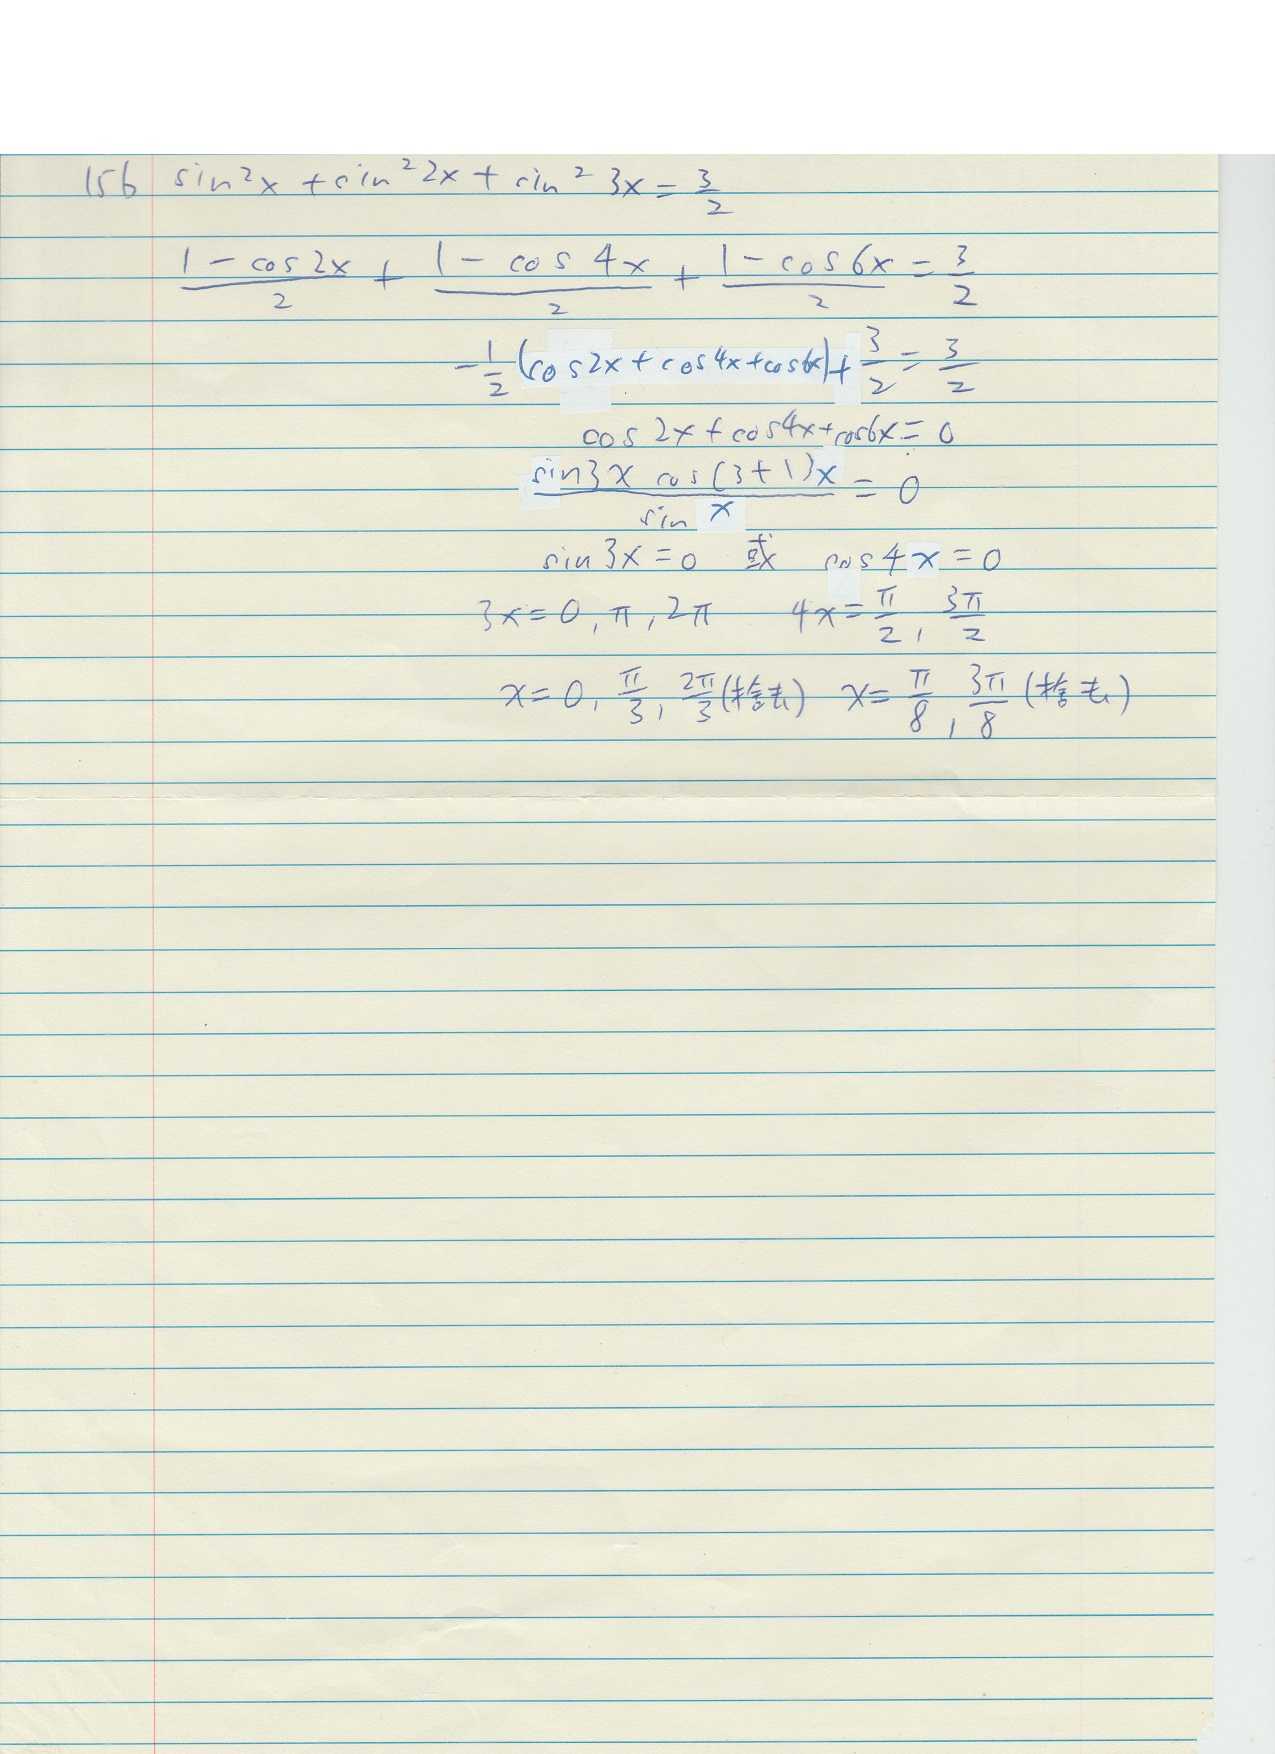 156 sin²x + sin²2x + sin²3x = 3/2
(1 - cos2x)/2 + (1 - cos4x)/2 + (1 - cos6x)/2 = 3/2
-1/2 (cos2x + cos4x + cos6x) + 3/2 = 3/2
cos2x + cos4x + cos6x = 0
sin3x cos(3+1)x / sin x = 0
sin3x = 0 或 cos4x = 0
3x = 0, π, 2π 4x = π/2, 3π/2
x = 0, π/3, 2π/3 (捨去) x = π/8, 3π/8 (捨去)